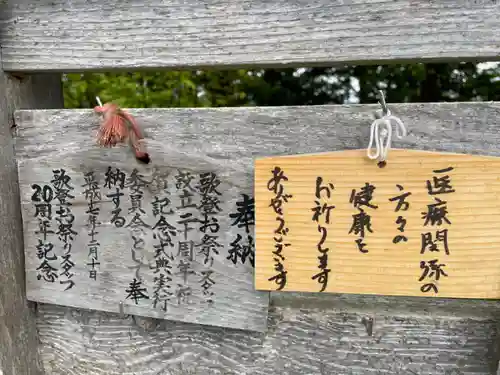 医療関係の
方々の
健康を
お祈りします
ありがとうございます
奉納
歌登お祭りスタッフ
設立二十周年祝
賀記念式典実行
委員会として奉
納する
平成七年十二月十日
歌登お祭りスタッフ
20周年記念